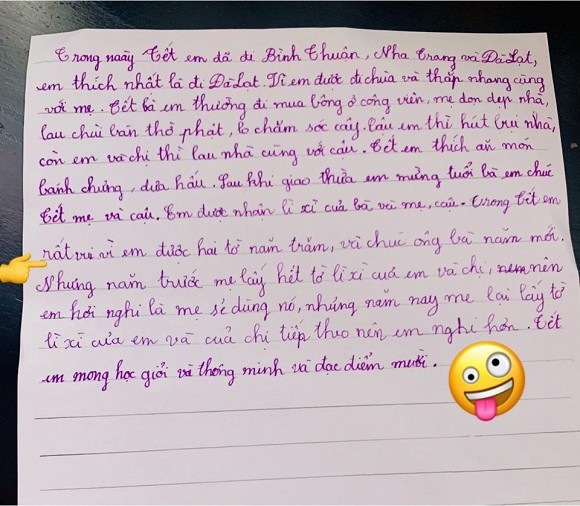 Trong naày Tết em dã di Bình Thuận, Nha Trang và Dà Lạt,
em thích nhất là di Dà Lạt. Vì em dược di chùa và thắp nhang cũng
với mẹ. Tết bà em thường di mua bông ở công viên, mẹ dọn dẹp nhà,
lau chùi bàn thờ phật, lo chăm sóc cây. Cậu em thì hút bụi nhà,
còn em và chị thì lau nhà cùng với cậu. Tết em thích ăn món
bánh chưng, dưa hấu. Sau khi giao thừa em mừng tuổi bà em chúc
Tết mẹ và cậu. Em dược nhận lì xì của bà và mẹ, cậu. Trong Tết em
rất vui vì em dược hai tờ năm trăm, và chúc ông bà năm mới.
Nhưng năm trước mẹ lấy hết tờ lì xì cuả em và chị, nên
em hơi nghi là mẹ sẽ dùng nó, nhưng năm nay mẹ lại lấy tờ
lì xì của em và cuả chị tiếp theo nên em nghi hơn. Tết
em mong học giỏi và thông minh và dạc diểm mười.